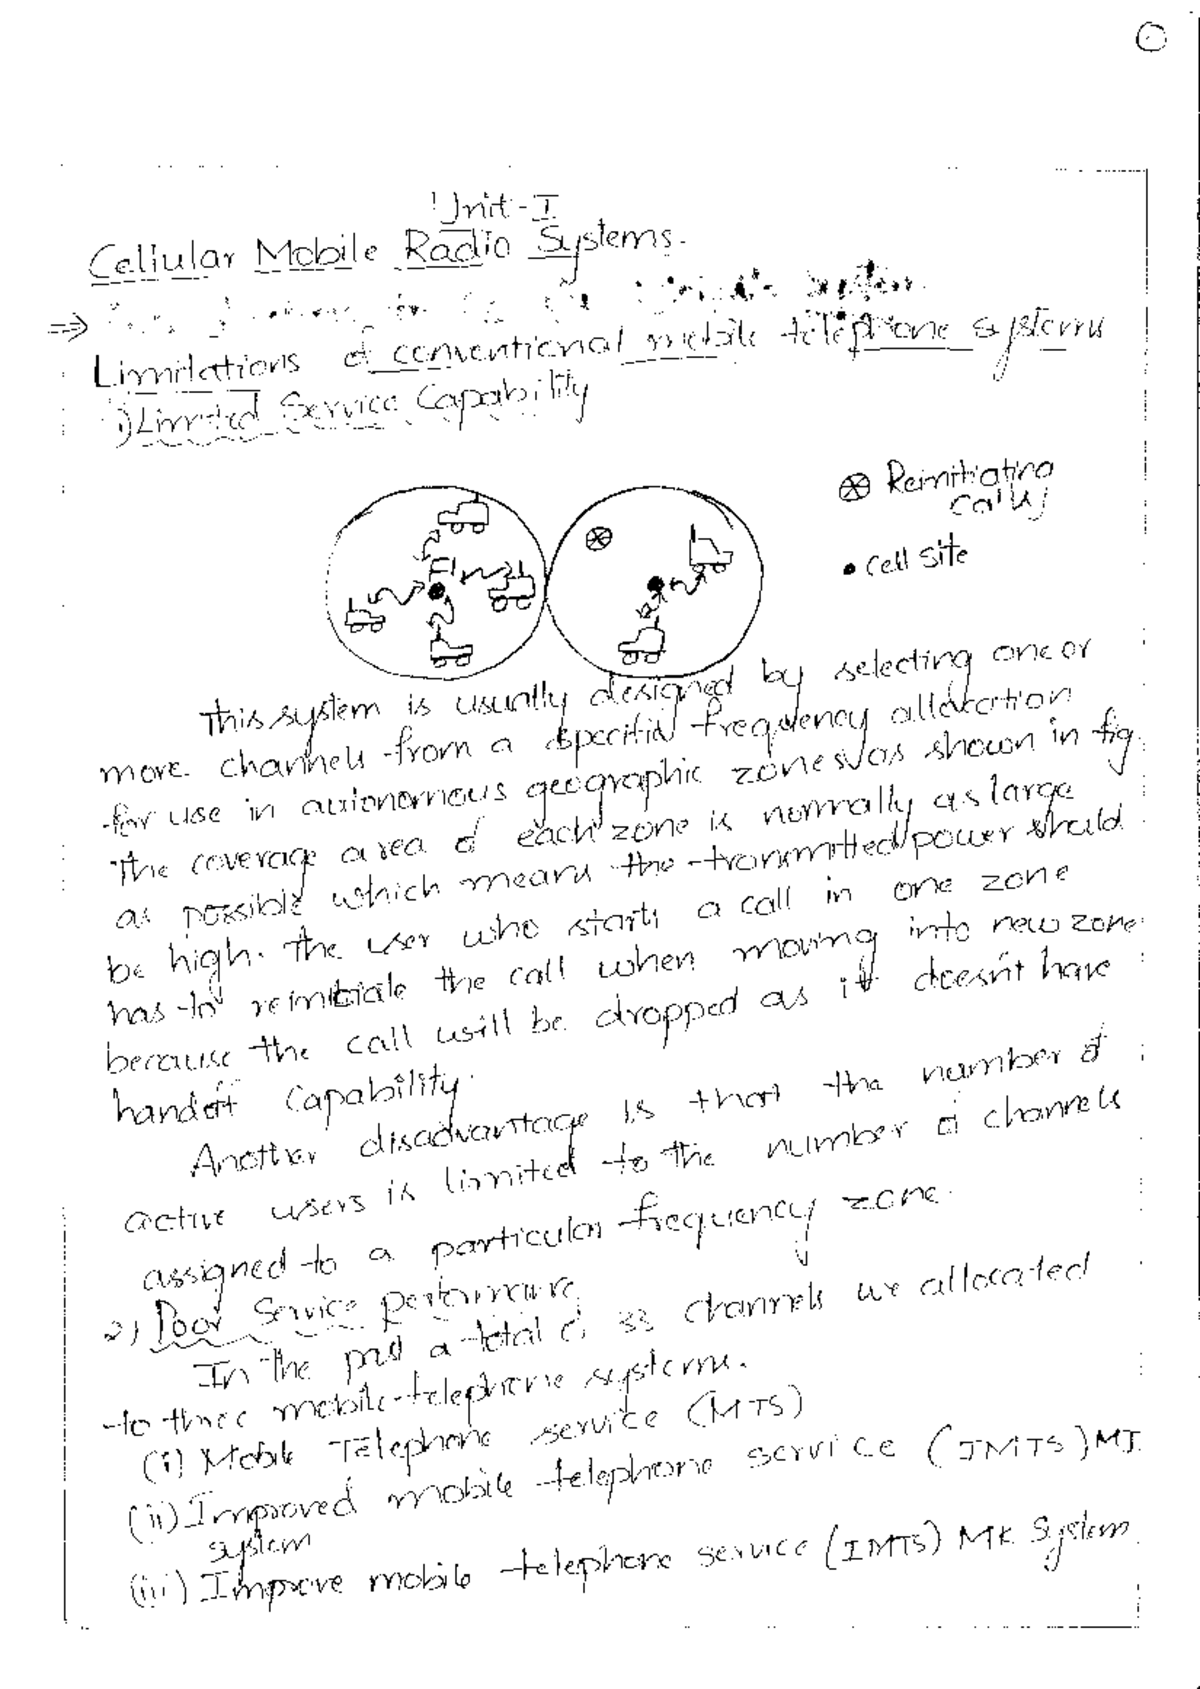 Unit-I
Cellular Mobile Radio Systems.
⇒
Limitations of conventional mobile telephone systems
i) Limited Service Capability
⊗ Reinitiating
calls
• Cell Site
F1
This system is usually designed by selecting one or
more channels from a specific frequency allocation
for use in autonomous geographic zones as shown in fig.
The coverage area of each zone is normally as large
as possible which means the transmitted power should
be high. The user who starts a call in one zone
has to reinitiate the call when moving into new zone
because the call will be dropped as it doesn't have
handoff capability.
Another disadvantage is that the number of
active users is limited to the number of channels
assigned to a particular frequency zone.
2) Poor Service performance
In the past a total of 33 channels we allocated
to three mobile telephone systems.
(i) Mobile Telephone service (MTS)
(ii) Improved mobile telephone service (IMTS) MJ
system
(iii) Improve mobile telephone service (IMTS) MK System